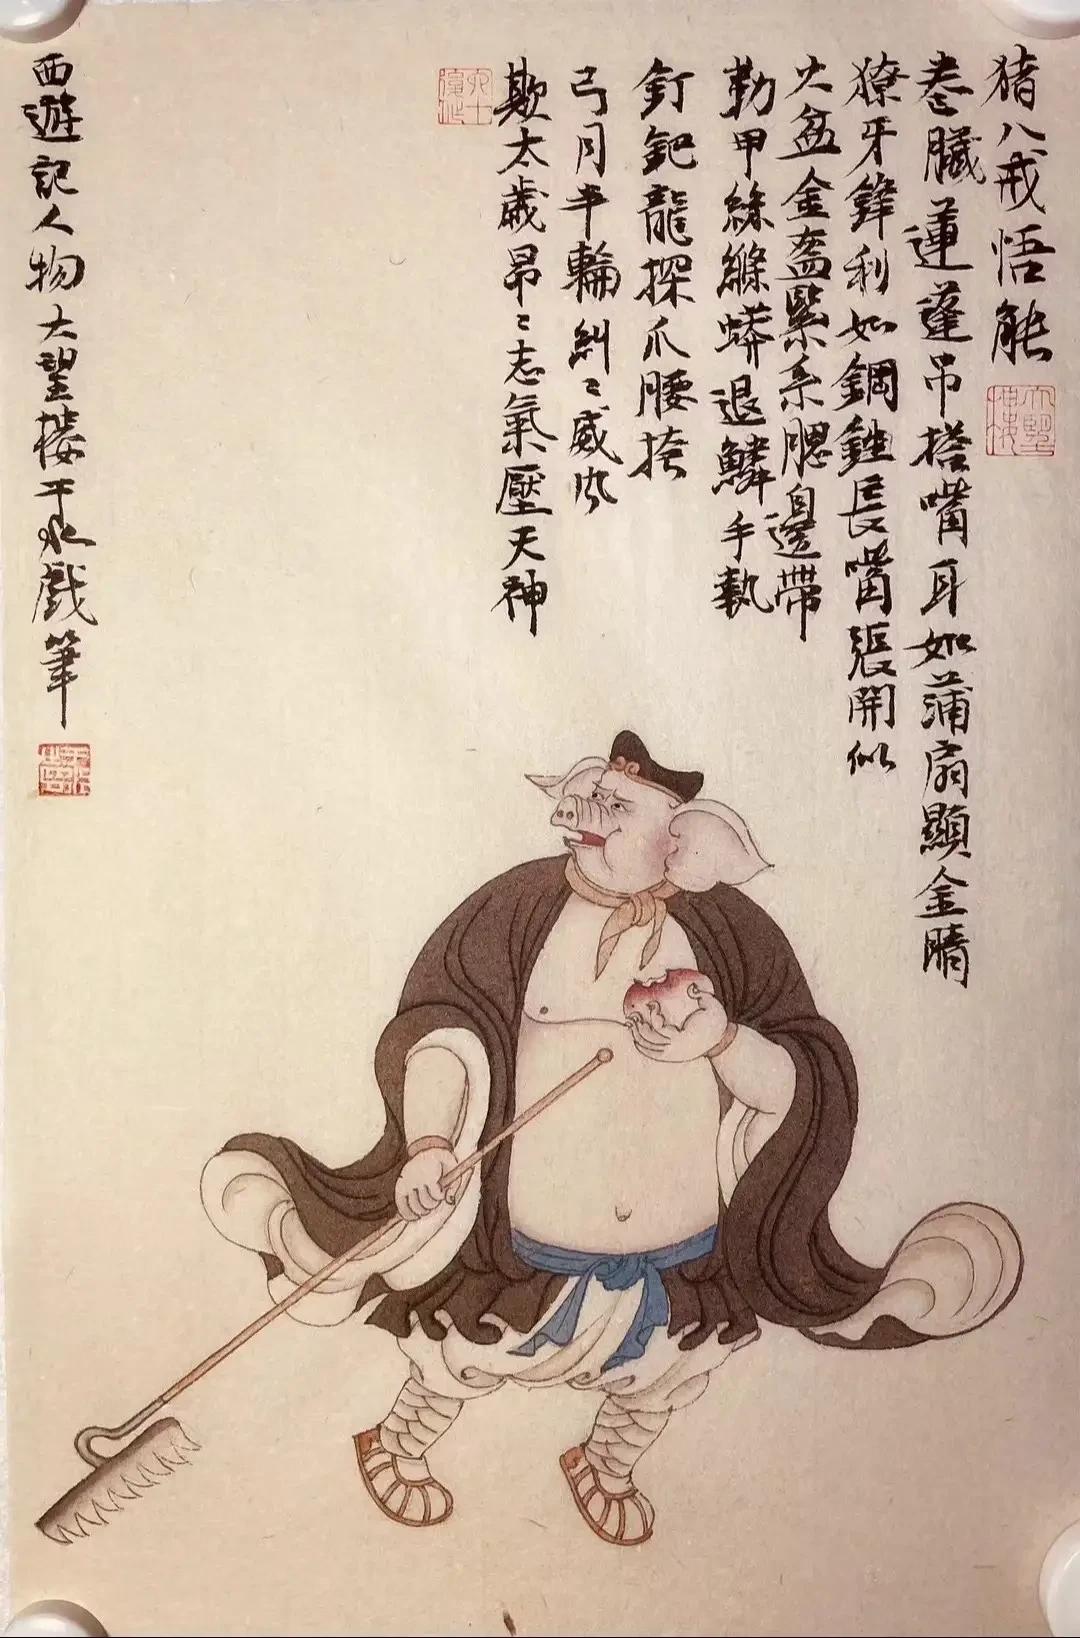 猪八戒悟能
卷臓蓮蓬吊搭嘴耳如蒲扇顯金睛
獠牙鋒利如鋼銼長嘴張開似
火盆金盔緊系腮邊帶
勒甲絲縧蟒退鱗手執
釘鈀龍探爪腰挎
弓月半輪糾〻威风
欺太歲昂〻志氣壓天神
西遊記人物大望楼于水戲筆